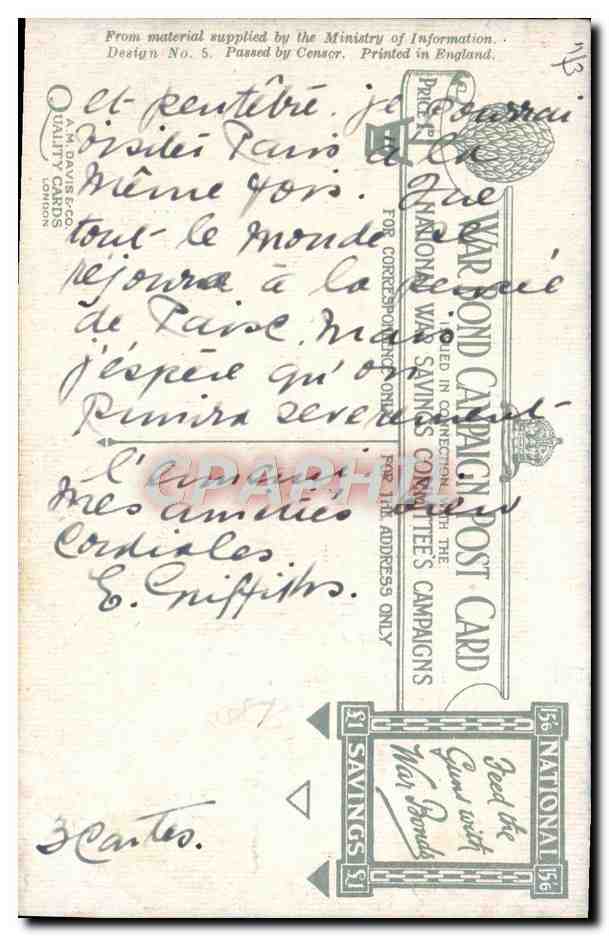 From material supplied by the Ministry of Information.
Design No. 5. Passed by Censor. Printed in England.
et peutêtre je pourrai
visiter Paris à la
même fois. Que
tout le monde se
réjouira à la pensée
de Paix, mais
j'espère qu'on
punira severement
l'ennemi.
Mes amitiés bien
Cordiales
E. Griffiths.
3 Cartes.
A.M. DAVIS & CO.
QUALITY CARDS
LONDON
WAR BOND CAMPAIGN POST CARD
ISSUED IN CONNECTION WITH THE
NATIONAL WAR SAVINGS COMMITTEE'S CAMPAIGNS
FOR CORRESPONDENCE ONLY
FOR THE ADDRESS ONLY
PRICE 1D
NATIONAL
15/6 15/6
Feed the
Guns with
War Bonds
£1 SAVINGS £1
CPAPHIL